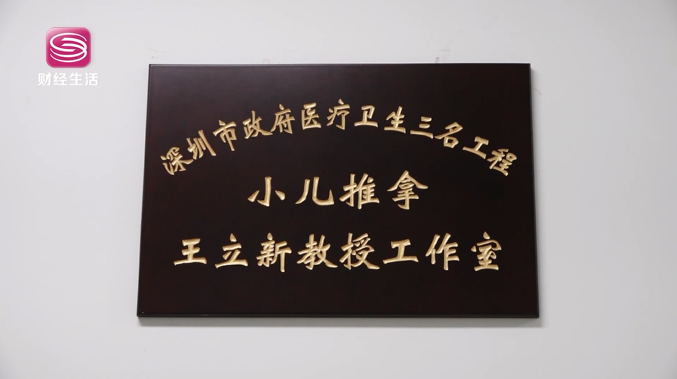 财经生活
深圳市政府医疗卫生三名工程
小儿推拿
王立新教授工作室